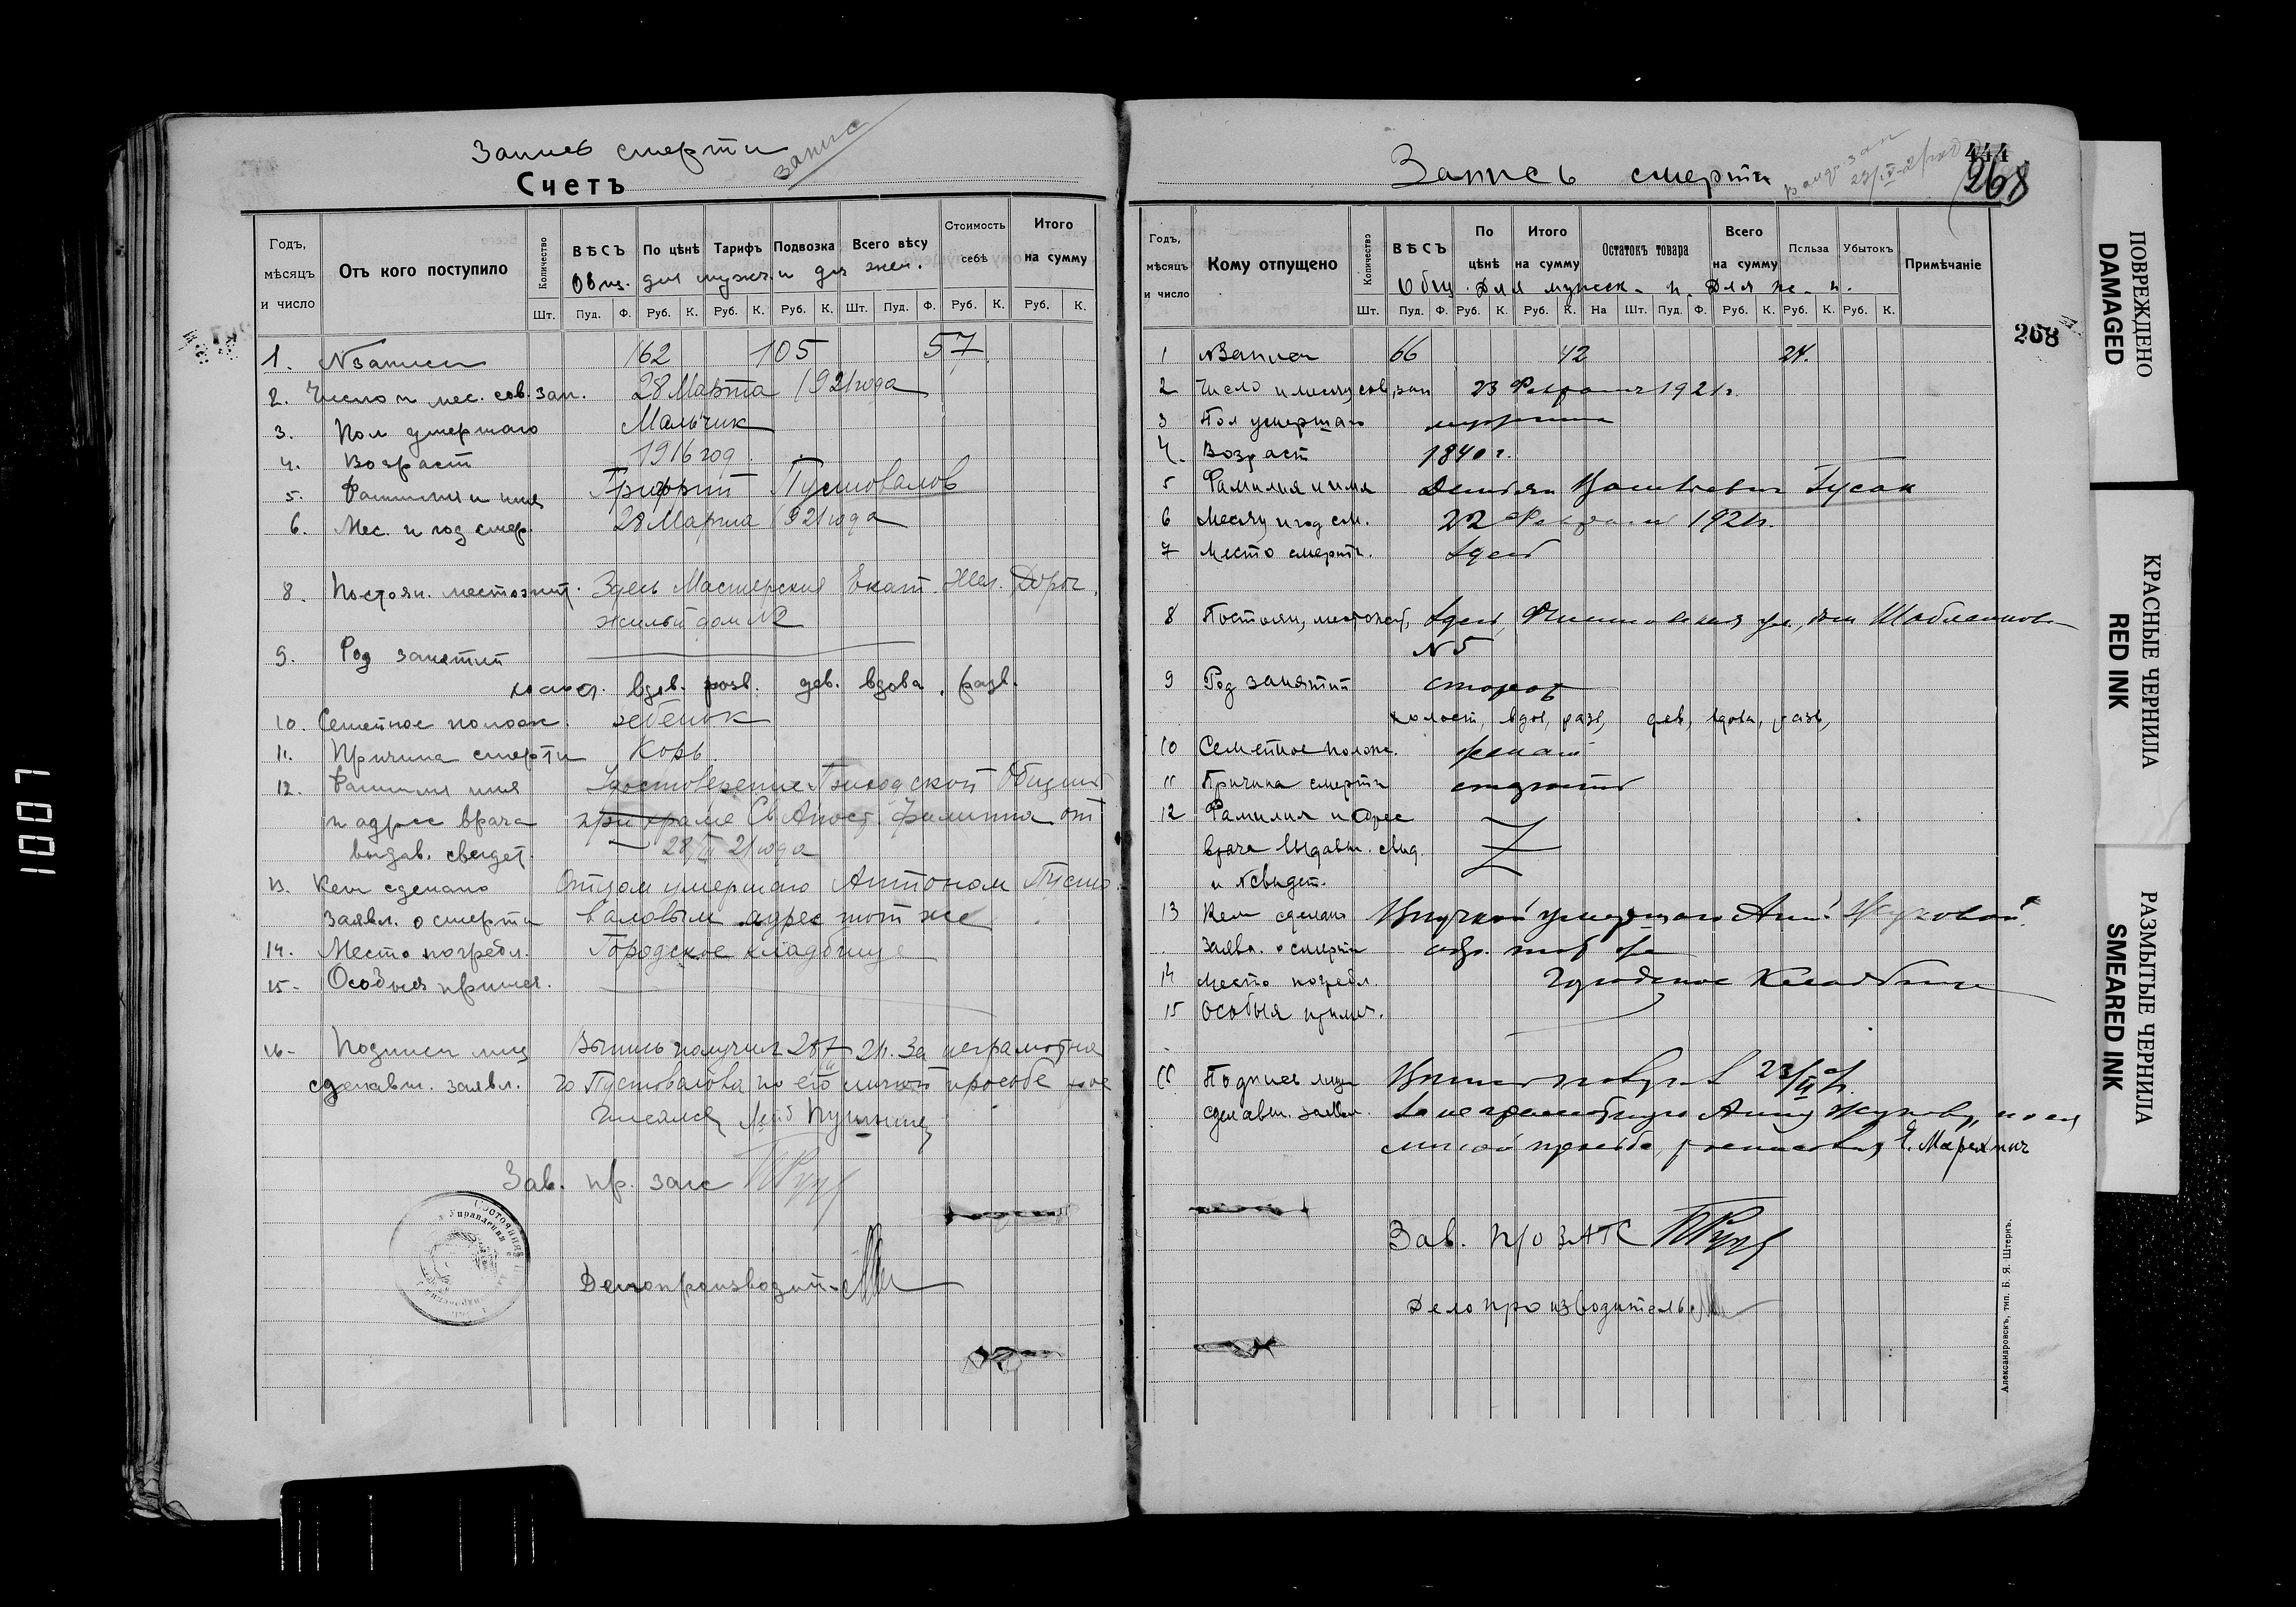 Запись смерти
запис
Счетъ
Годъ, мѣсяцъ и число
Отъ кого поступило
Количество
Шт.
ВѢСЪ По цѣнѣ Тарифъ Подвозка Всего вѣсу Стоимость себѣ Итого на сумму
Общ. для мужч. и для жен.
Пуд. Ф. Руб. К. Руб. К. Руб. К. Шт. Пуд. Ф. Руб. К. Руб. К.
1. № записи 162 105 57
2. Число и мес. сов. зап. 28 Марта 1921 года
3. Пол умершаго Мальчик
4. Возраст 1916 год
5. Фамилия и имя Григорий Пустовалов
6. Мес. и год смер. 28 Марта 1921 года
8. Постоян. местожит. Здесь Мастерския Екат. Жел. Дорог.
жилый дом №2
9. Род занятий
холост. вдов. розв. дев. вдова, разв.
10. Семейное полож. ребенок
11. Причина смерти Корь
12. Фамилия имя Удостоверение Приходской Общины
и адрес врача при храме Св. Апост. Филиппа от
выдав. свидет. 28/III 21 года
13. Кем сделано Отцом умершаго Антоном Пусто
заявл. о смерти валовым адрес тот же
14. Место погребл. Городское кладбище
15. Особыя примеч.
16. Подписи лиц Выпись получил 28/III 21 г. За неграмотна
сделавш. заявл. го Пустовалова по его личной просьбе рос
писался
Зав. пр. загс
Делопроизводит.
Запись смерти
444
268
Годъ, мѣсяцъ и число
Кому отпущено
Количество
Шт.
ВѢСЪ По цѣнѣ Итого на сумму Остатокъ товара Всего на сумму Польза Убытокъ Примѣчаніе
Общ. для мужск. п. для ж. п.
Пуд. Ф. Руб. К. Руб. К. На Шт. Пуд. Ф. Руб. К. Руб. К. Руб. К.
268
1 № записи 66 42 24.
2 Число и месяц сов. зап 23 Февраля 1921 г.
3 Пол умершаго мужчина
4. Возраст 1840 г.
5 Фамилия и имя Демьян Васильевич Гусак
6 Месяц и год см. 22 Февраля 1921 г.
7 Место смерти. Здесь
8 Постоян, местожит, Здесь,
№ 5
9 Род занятий сторож
холост, вдов, разв, дев, вдова, разв,
10 Семейное полож. женат
11 Причина смерти старость
12 Фамилия и адрес
врача выдавш. свид.
и № свидет.
13 Кем сделано Внучкой умершаго Анной Жуковой.
Заявл. о смерти адр. тот же
14 Место погребл. Городское Кладбище
15 Особыя примеч.
16 Подпись лица
сделавш. заявл. За неграмотную Анну Жукову, по ея
личной просьбе, росписался
Зав. п/о ЗАГС
Делопроизводитель
Александровскъ, тип. Б. Я. Штернъ.
ПОВРЕЖДЕНО
DAMAGED
КРАСНЫЕ ЧЕРНИЛА
RED INK
РАЗМЫТЫЕ ЧЕРНИЛА
SMEARED INK
1007